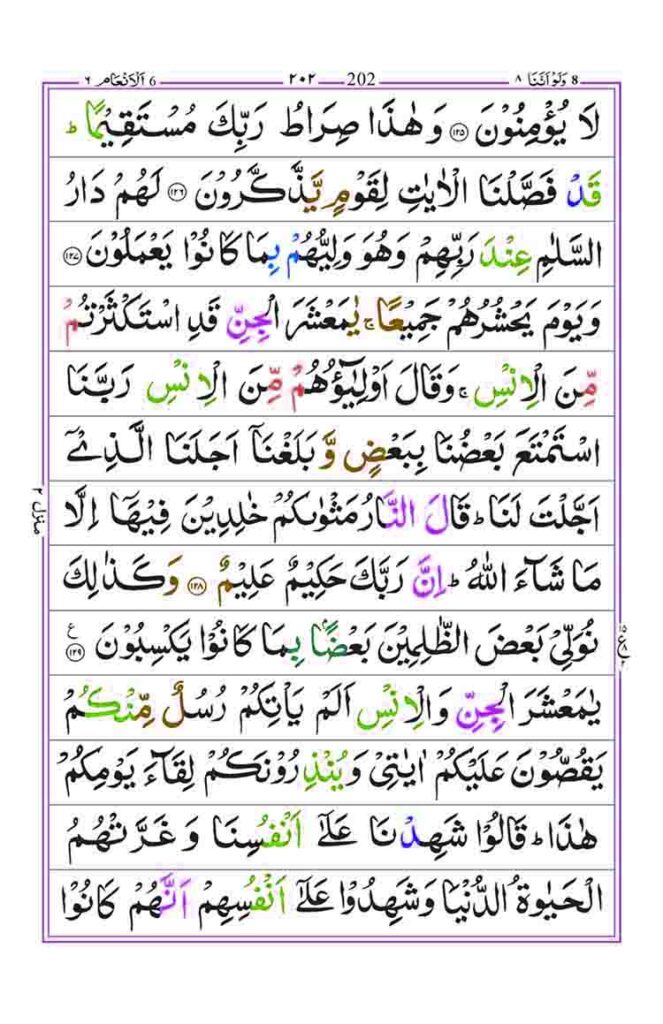 8 وَلَوْ اَنَّنَا ٨ 202 ٢٠٢ 6 اَلْاَنْعَام ٦
لَا يُؤْمِنُوْنَ ۝١٢٥ وَ هٰذَا صِرَاطُ رَبِّكَ مُسْتَقِيْمًا ؕ
قَدْ فَصَّلْنَا الْاٰيٰتِ لِقَوْمٍ يَّذَّكَّرُوْنَ ۝١٢٦ لَهُمْ دَارُ
السَّلٰمِ عِنْدَ رَبِّهِمْ وَهُوَ وَلِيُّهُمْ بِمَا كَانُوْا يَعْمَلُوْنَ ۝١٢٧
وَيَوْمَ يَحْشُرُهُمْ جَمِيْعًا ۚ يٰمَعْشَرَ الْجِنِّ قَدِ اسْتَكْثَرْتُمْ
مِّنَ الْاِنْسِ ۚ وَقَالَ اَوْلِيٰٓؤُهُمْ مِّنَ الْاِنْسِ رَبَّنَا
اسْتَمْتَعَ بَعْضُنَا بِبَعْضٍ وَّ بَلَغْنَاۤ اَجَلَنَا الَّذِيْۤ
اَجَّلْتَ لَنَا ؕ قَالَ النَّارُ مَثْوٰىكُمْ خٰلِدِيْنَ فِيْهَاۤ اِلَّا
مَا شَآءَ اللّٰهُ ؕ اِنَّ رَبَّكَ حَكِيْمٌ عَلِيْمٌ ۝١٢٨ وَكَذٰلِكَ
نُوَلِّيْ بَعْضَ الظّٰلِمِيْنَ بَعْضًاۢ بِمَا كَانُوْا يَكْسِبُوْنَ ۝١٢٩ ع
يٰمَعْشَرَ الْجِنِّ وَالْاِنْسِ اَلَمْ يَاْتِكُمْ رُسُلٌ مِّنْكُمْ
يَقُصُّوْنَ عَلَيْكُمْ اٰيٰتِيْ وَيُنْذِرُوْنَكُمْ لِقَآءَ يَوْمِكُمْ
هٰذَا ؕ قَالُوْا شَهِدْنَا عَلٰٓى اَنْفُسِنَا وَ غَرَّتْهُمُ
الْحَيٰوةُ الدُّنْيَا وَشَهِدُوْا عَلٰٓى اَنْفُسِهِمْ اَنَّهُمْ كَانُوْا
منزل ٢